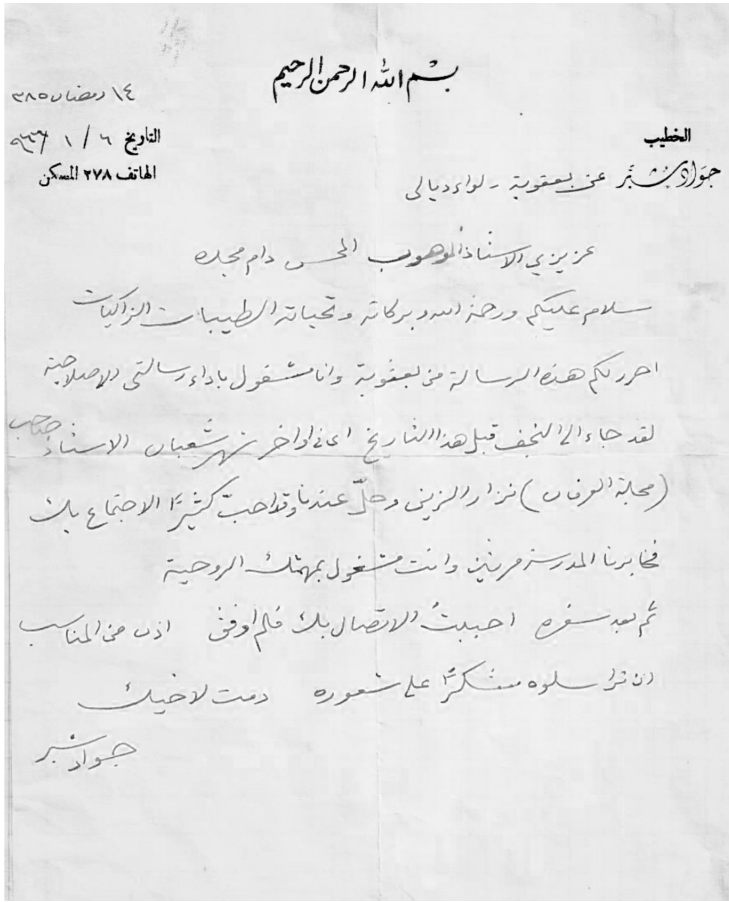 بسم الله الرحمن الرحيم
١٤ رمضان ٣٨٥
الخطيب
التاريخ ٦ / ١ / ٩٦٦
جواد شبر عن بعقوبة - لواء ديالى
الهاتف ٢٧٨ المسكن
عزيزي الاستاذ الموهوب المحسن دام مجده
سلام عليكم ورحمة الله وبركاته وتحياته الطيبات الزاكيات
احرر لكم هذه الرسالة من بعقوبة وانا مشغول باداء رسالتي الاصلاحية
لقد جاء الى النجف قبل هذا التاريخ اعني اواخر شهر شعبان الاستاذ صاحب
(مجلة العرفان) نزار الزين وحلّ عندنا وقد احبّ كثيرًا الاجتماع بك
فخابرنا المدرسة مرتين وانت مشغول بمهمتك الروحية
ثم بعد سفره احببتُ الاتصال بك فلم اوفق اذن من المناسب
ان تراسلوه متشكرًا على شعوره دمت لاخيك
جواد شبر